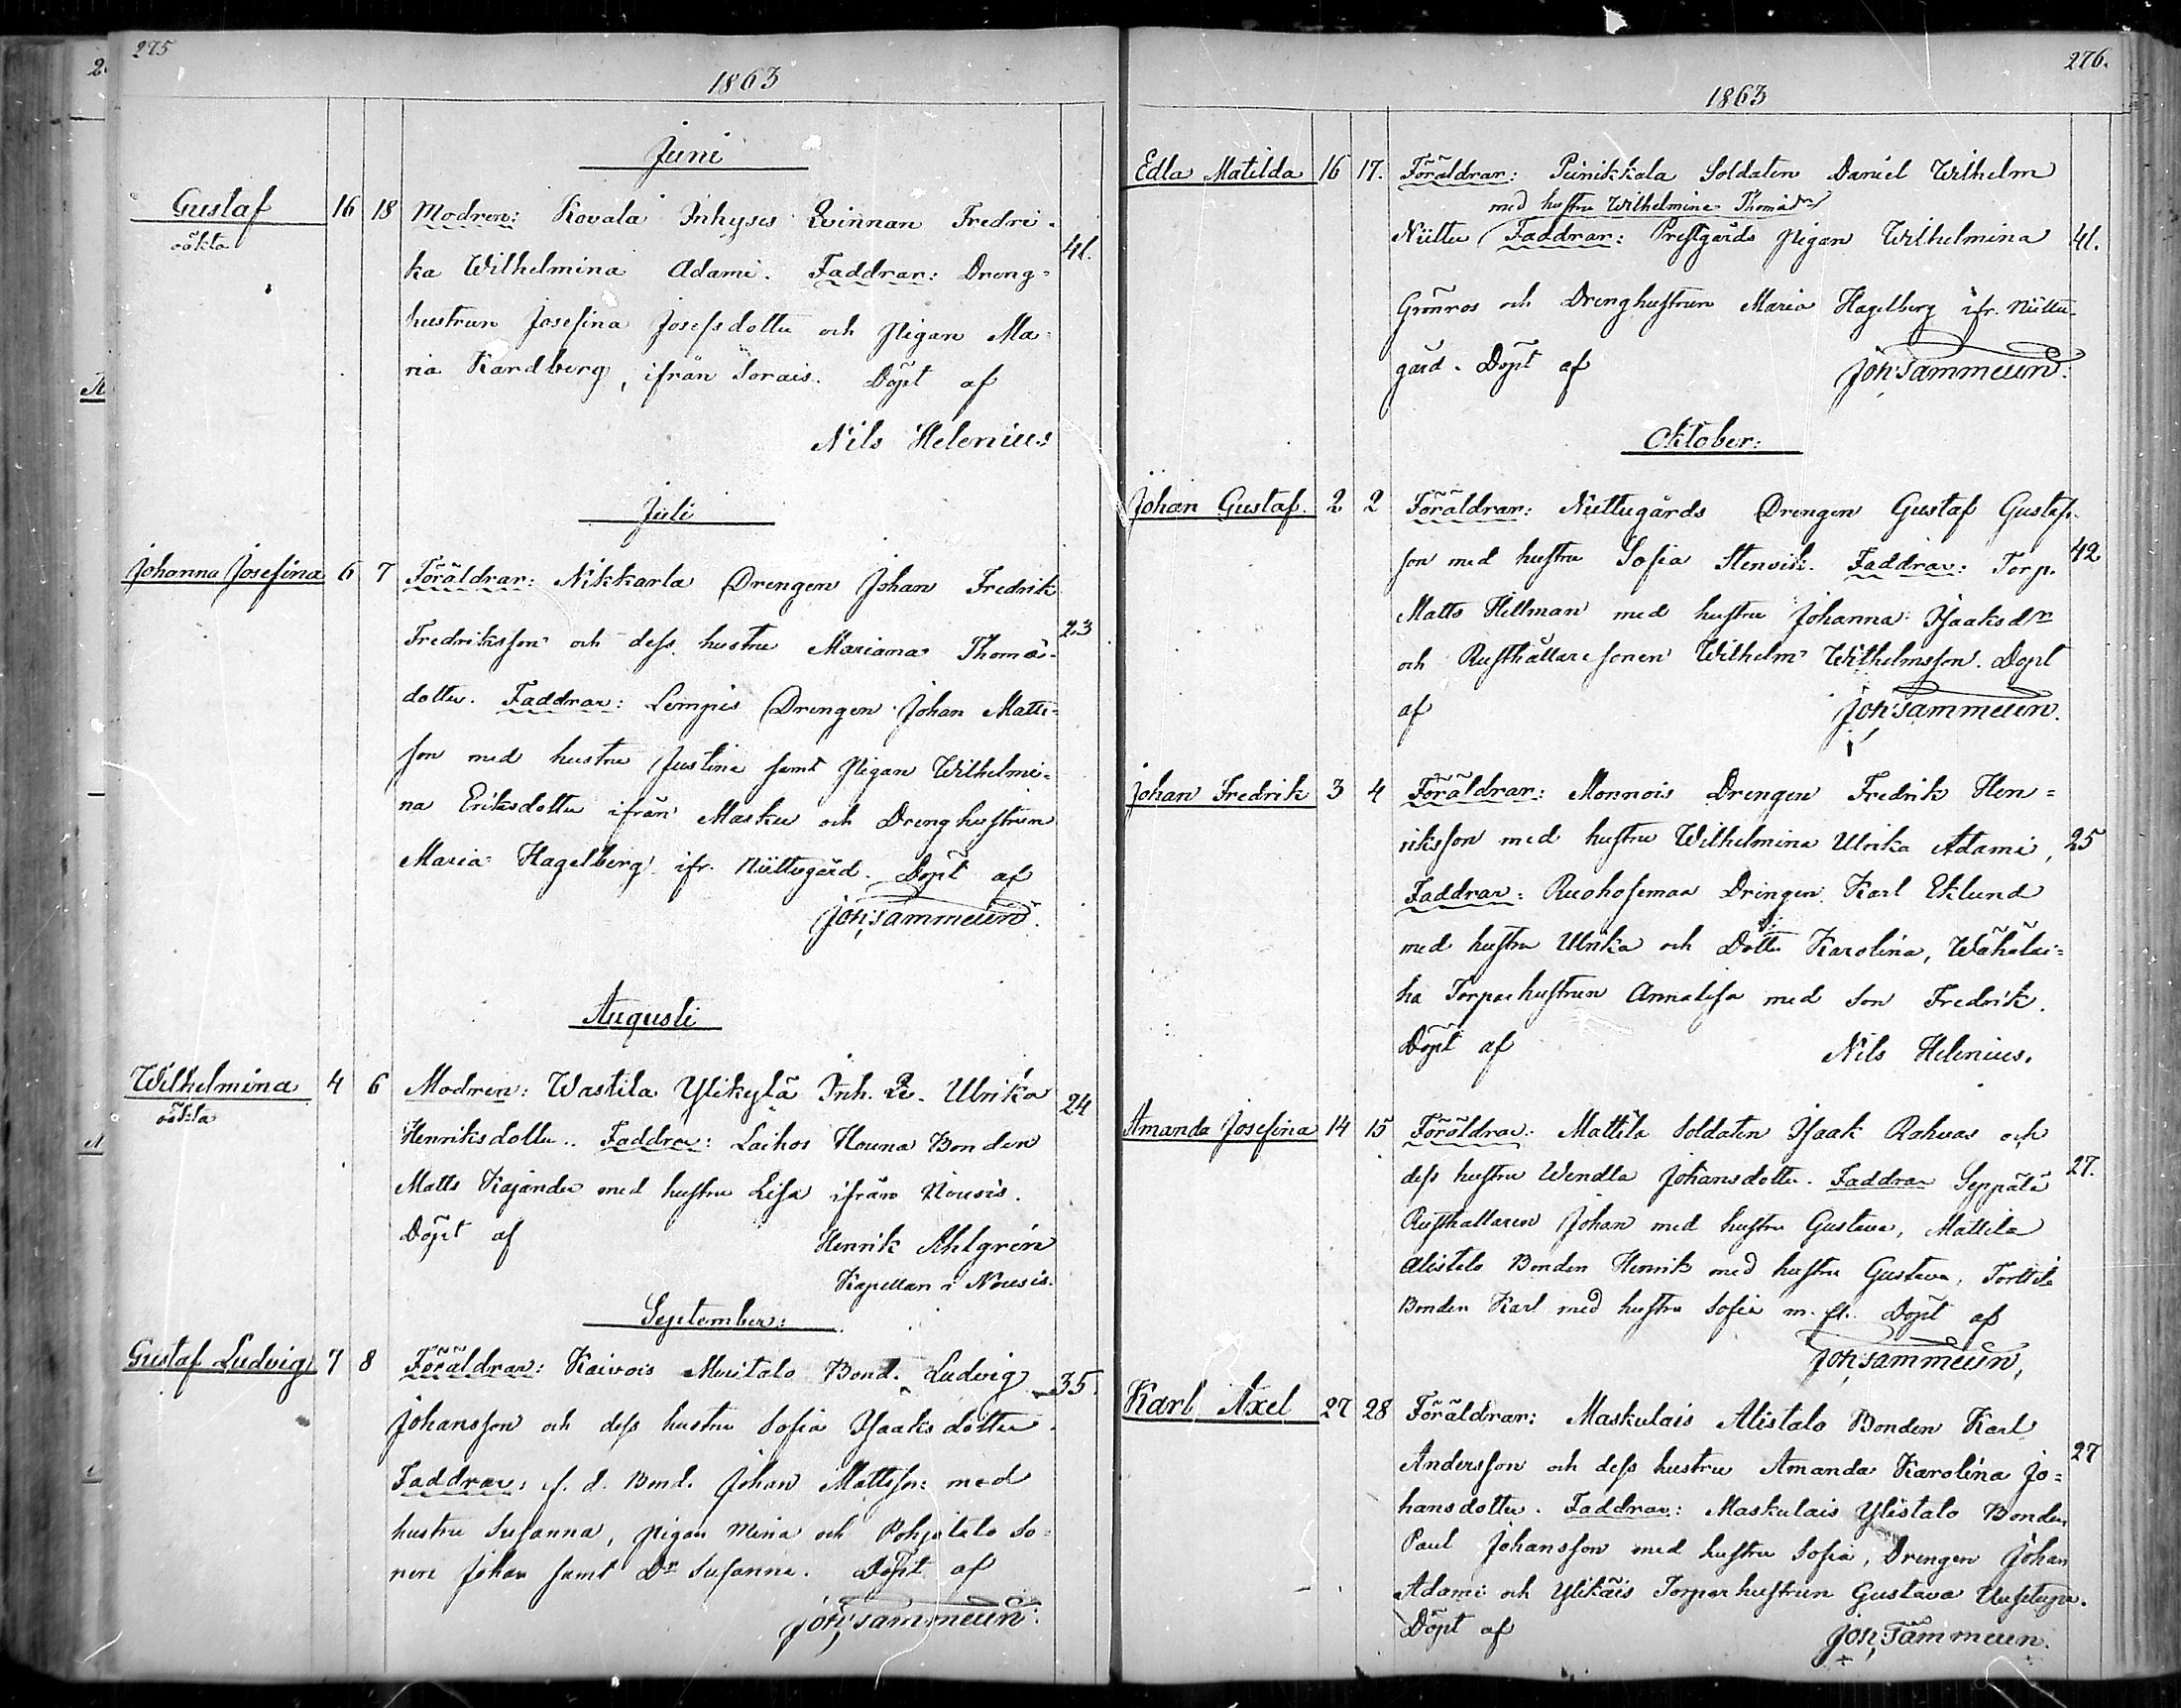 275
1863
Juni
Gustaf 16 18 Modren: Kovala Inhyses Qvinnan Fredri-
oäkta
ka Wilhelmina Adami. Faddrar: Dreng- 41.
hustrun Josefina Josefsdotter och Pigan Ma-
ria Kardberg, ifrån Sorais. Döpt af
Nils Helenius
Juli
Johanna Josefina 6 7 Föräldrar: Nikkarla Drengen Johan Fredrik
Fredriksson och dess hustru Mariana Thomä- 23
dotter. Faddrar: Lempis Drengen Johan Matts-
son med hustru Justina samt Pigan Wilhelmi-
na Eriksdotter ifrån Masku och Drenghustrun
Maria Hagelberg ifr. Niittugård. Döpt af
Joh. Tammelin.
Augusti
Wilhelmina 4 6 Modren: Wastila Ylikylä Inh. Q. Ulrika 24
oäkta
Henriksdotter. Faddrar: Laihos Nouna Bonden
Matts Kajander med hustru Lisa ifrån Nousis.
Döpt af Henrik Ahlgrén
Kapellan i Nousis.
September:
Gustaf Ludvig 7 8 Föräldrar: Kaivois Muitalo Bond. Ludvig 35.
Johansson och dess hustru Sofia Isaksdotter.
Faddrar: f. d. Bond. Johan Mattsson med
hustru Susanna, pigan Mina och Pohjatalo So-
nen Johan samt Dr Susanna. Döpt af
Joh. Tammelin.
276.
1863
Edla Matilda 16 17. Föräldrar: Piinikkala Soldaten Daniel Wilhelm
med hustru Wilhelmina Thomädr
Niittu Faddrar: Prestgårds Pigan Wilhelmina 41.
Grönros och Drenghustrun Maria Hagelberg ifr. Niittu-
gård. Döpt af Joh. Tammelin.
Oktober:
Johan Gustaf. 2 2 Föräldrar: Niittugårds Drengen Gustaf Gustafs-
son med hustru Sofia Stenvik. Faddrar: Torp. 42
Matts Hellman med hustru Johanna Isaaksdr
och Rusthållaresonen Wilhelm Wilhelmsson. Döpt
af Joh. Tammelin.
Johan Fredrik 3 4 Föräldrar: Monnois Drengen Fredrik Hen-
riksson med hustru Wilhelmina Ulrika Adami, 25
Faddrar: Ruohosemaa Drengen Karl Eklund
med hustru Ulrika och Dotter Karolina, Wähälai-
ha Torparhustrun Annalisa med Son Fredrik.
Döpt af Nils Helenius.
Amanda Josefina 14 15 Föräldrar: Mattila Soldaten Isaak Rohwas och
dess hustru Wendla Johansdotter. Faddrar Seppälä 27.
Rusthållaren Johan med hustru Gustava, Mattila
Alistalo Bonden Henrik med hustru Gustava, Torttila
Bonden Karl med hustru Sofia m. fl. Döpt af
Joh. Tammelin,
Karl Axel 27 28 Föräldrar: Maskulais Alistalo Bonden Karl
Andersson och dess hustru Amanda Karolina Jo- 27
hansdotter. Faddrar: Maskulais Ylistalo Bonden
Paul Johansson med hustru Sofia, Drengen Johan
Adami och Ylikäis Torparhustrun Gustava Uusitupa.
Döpt af Joh. Tammelin.